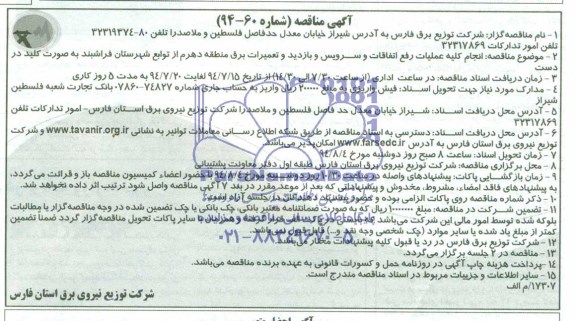 آگهی مناقصه (شماره ۶۰-۹۴)
۱- نام مناقصه گزار: شرکت توزیع برق فارس به آدرس شیراز خیابان معدل حدفاصل فلسطین و ملاصدرا تلفن ۸۰-۳۲۳۱۹۳۷۴
تلفن امور تدارکات ۳۲۳۱۷۸۶۹
۲- موضوع مناقصه: انجام کلیه عملیات رفع اتفاقات و سرویس و بازدید و تعمیرات برق منطقه دهرم از توابع شهرستان فراشبند به صورت کلید در
دست
۳- زمان دریافت اسناد مناقصه: در ساعت اداری (از ساعت ۷/۳۰ الی ۱۴/۳۰) از تاریخ ۹۴/۷/۱۵ لغایت ۹۴/۷/۲۰ به مدت ۵ روز کاری
۴- مدارک مورد نیاز جهت تحویل اسناد: فیش واریزی به مبلغ ۲۰۰۰۰۰ ریال واریز به حساب جاری شماره ۰۷۸۶۰۷۴۸۲۷ بانک تجارت شعبه فلسطین
شیراز
۵- آدرس محل دریافت اسناد: شیراز خیابان معدل حد فاصل فلسطین و ملاصدرا شرکت توزیع نیروی برق استان فارس- امور تدارکات تلفن
۳۲۳۱۷۸۶۹
۶- آدرس محل دریافت اسناد: دسترسی به اسناد مناقصه از طریق شبکه اطلاع رسانی معاملات توانیر به نشانی www.tavanir.org.ir و شرکت
توزیع نیروی برق استان فارس به آدرس www.farsedc.ir امکان پذیر می باشد
۷- زمان تحویل اسناد: ساعت ۸ صبح روز دوشنبه مورخ ۹۴/۸/۴
۸- محل برگزاری مناقصه: شرکت توزیع نیروی برق استان فارس طبقه اول دفتر معاونت پشتیبانی
۹- زمان بازگشایی پاکات: پیشنهادهای واصله در ساعت روز دوشنبه مورخ ۹۴/۸/۴ با حضور اعضاء کمیسیون مناقصه باز و قرائت می گردد،
به پیشنهادهای فاقد امضاء، مشروط، مخدوش و پیشنهاداتی که بعد از موعد مقرر در بند ۷ آگهی مناقصه واصل شود ترتیب اثر داده نخواهد شد.
۱۰- ذکر شماره مناقصه روی پاکات الزامی بوده و حضور پیشنهاد دهندگان در جلسه آزاد است.
۱۱- تضمین شرکت در مناقصه: مبلغ ریال که به صورت ضمانتنامه معتبر بانکی، چک بانکی یا چک تضمین شده در وجه مناقصه گزار یا مطالبات
بلوکه شده توسط امور مالی این شرکت می باشد سایر پاکات تحویل مناقصه گزار گردد ضمنا تضمین
کمتر از مبلغ یاد شده یا سایر موارد (چک شخصی وجه نقد و...) قابل قبول نمی باشد.
۱۲- شرکت توزیع برق فارس در رد یا قبول کلیه پیشنهادات مختار می باشد.
۱۳- مناقصه در ۲ جلسه برگزار می گردد.
۱۴- پرداخت هزینه چاپ آگهی در روزنامه حمل و کسورات قانونی به عهده برنده مناقصه می باشد.
۱۵- سایر اطلاعات و جزییات مربوط در اسناد مناقصه مندرج است.
۱۷۳۰۷/م الف
شرکت توزیع نیروی برق استان فارس